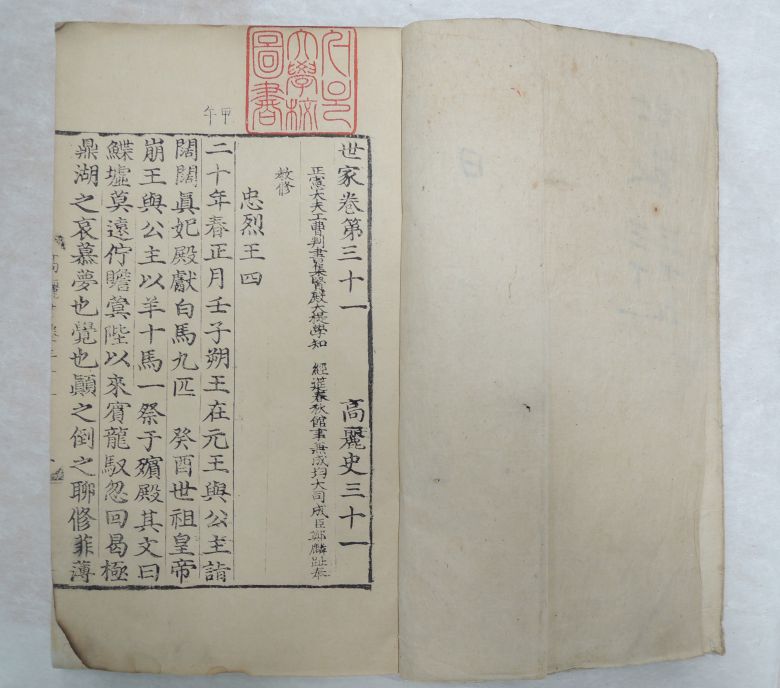 世家卷第三十一 高麗史三十一
正憲大夫工曹判書集賢殿大提學知 經筵春秋館事兼成均大司成臣鄭麟趾奉
敎修
忠烈王四
二十年春正月壬子朔王在元王與公主詣
闕闕眞妃殿獻白馬九匹 癸酉世祖皇帝
崩王與公主以羊十馬一祭于殯殿其文曰
鰈墟莫遠佇瞻蓂陛以來賓龍馭忽回曷極
鼎湖之哀慕夢也覺也顚之倒之聊修菲薄
甲午
大學校
圖書